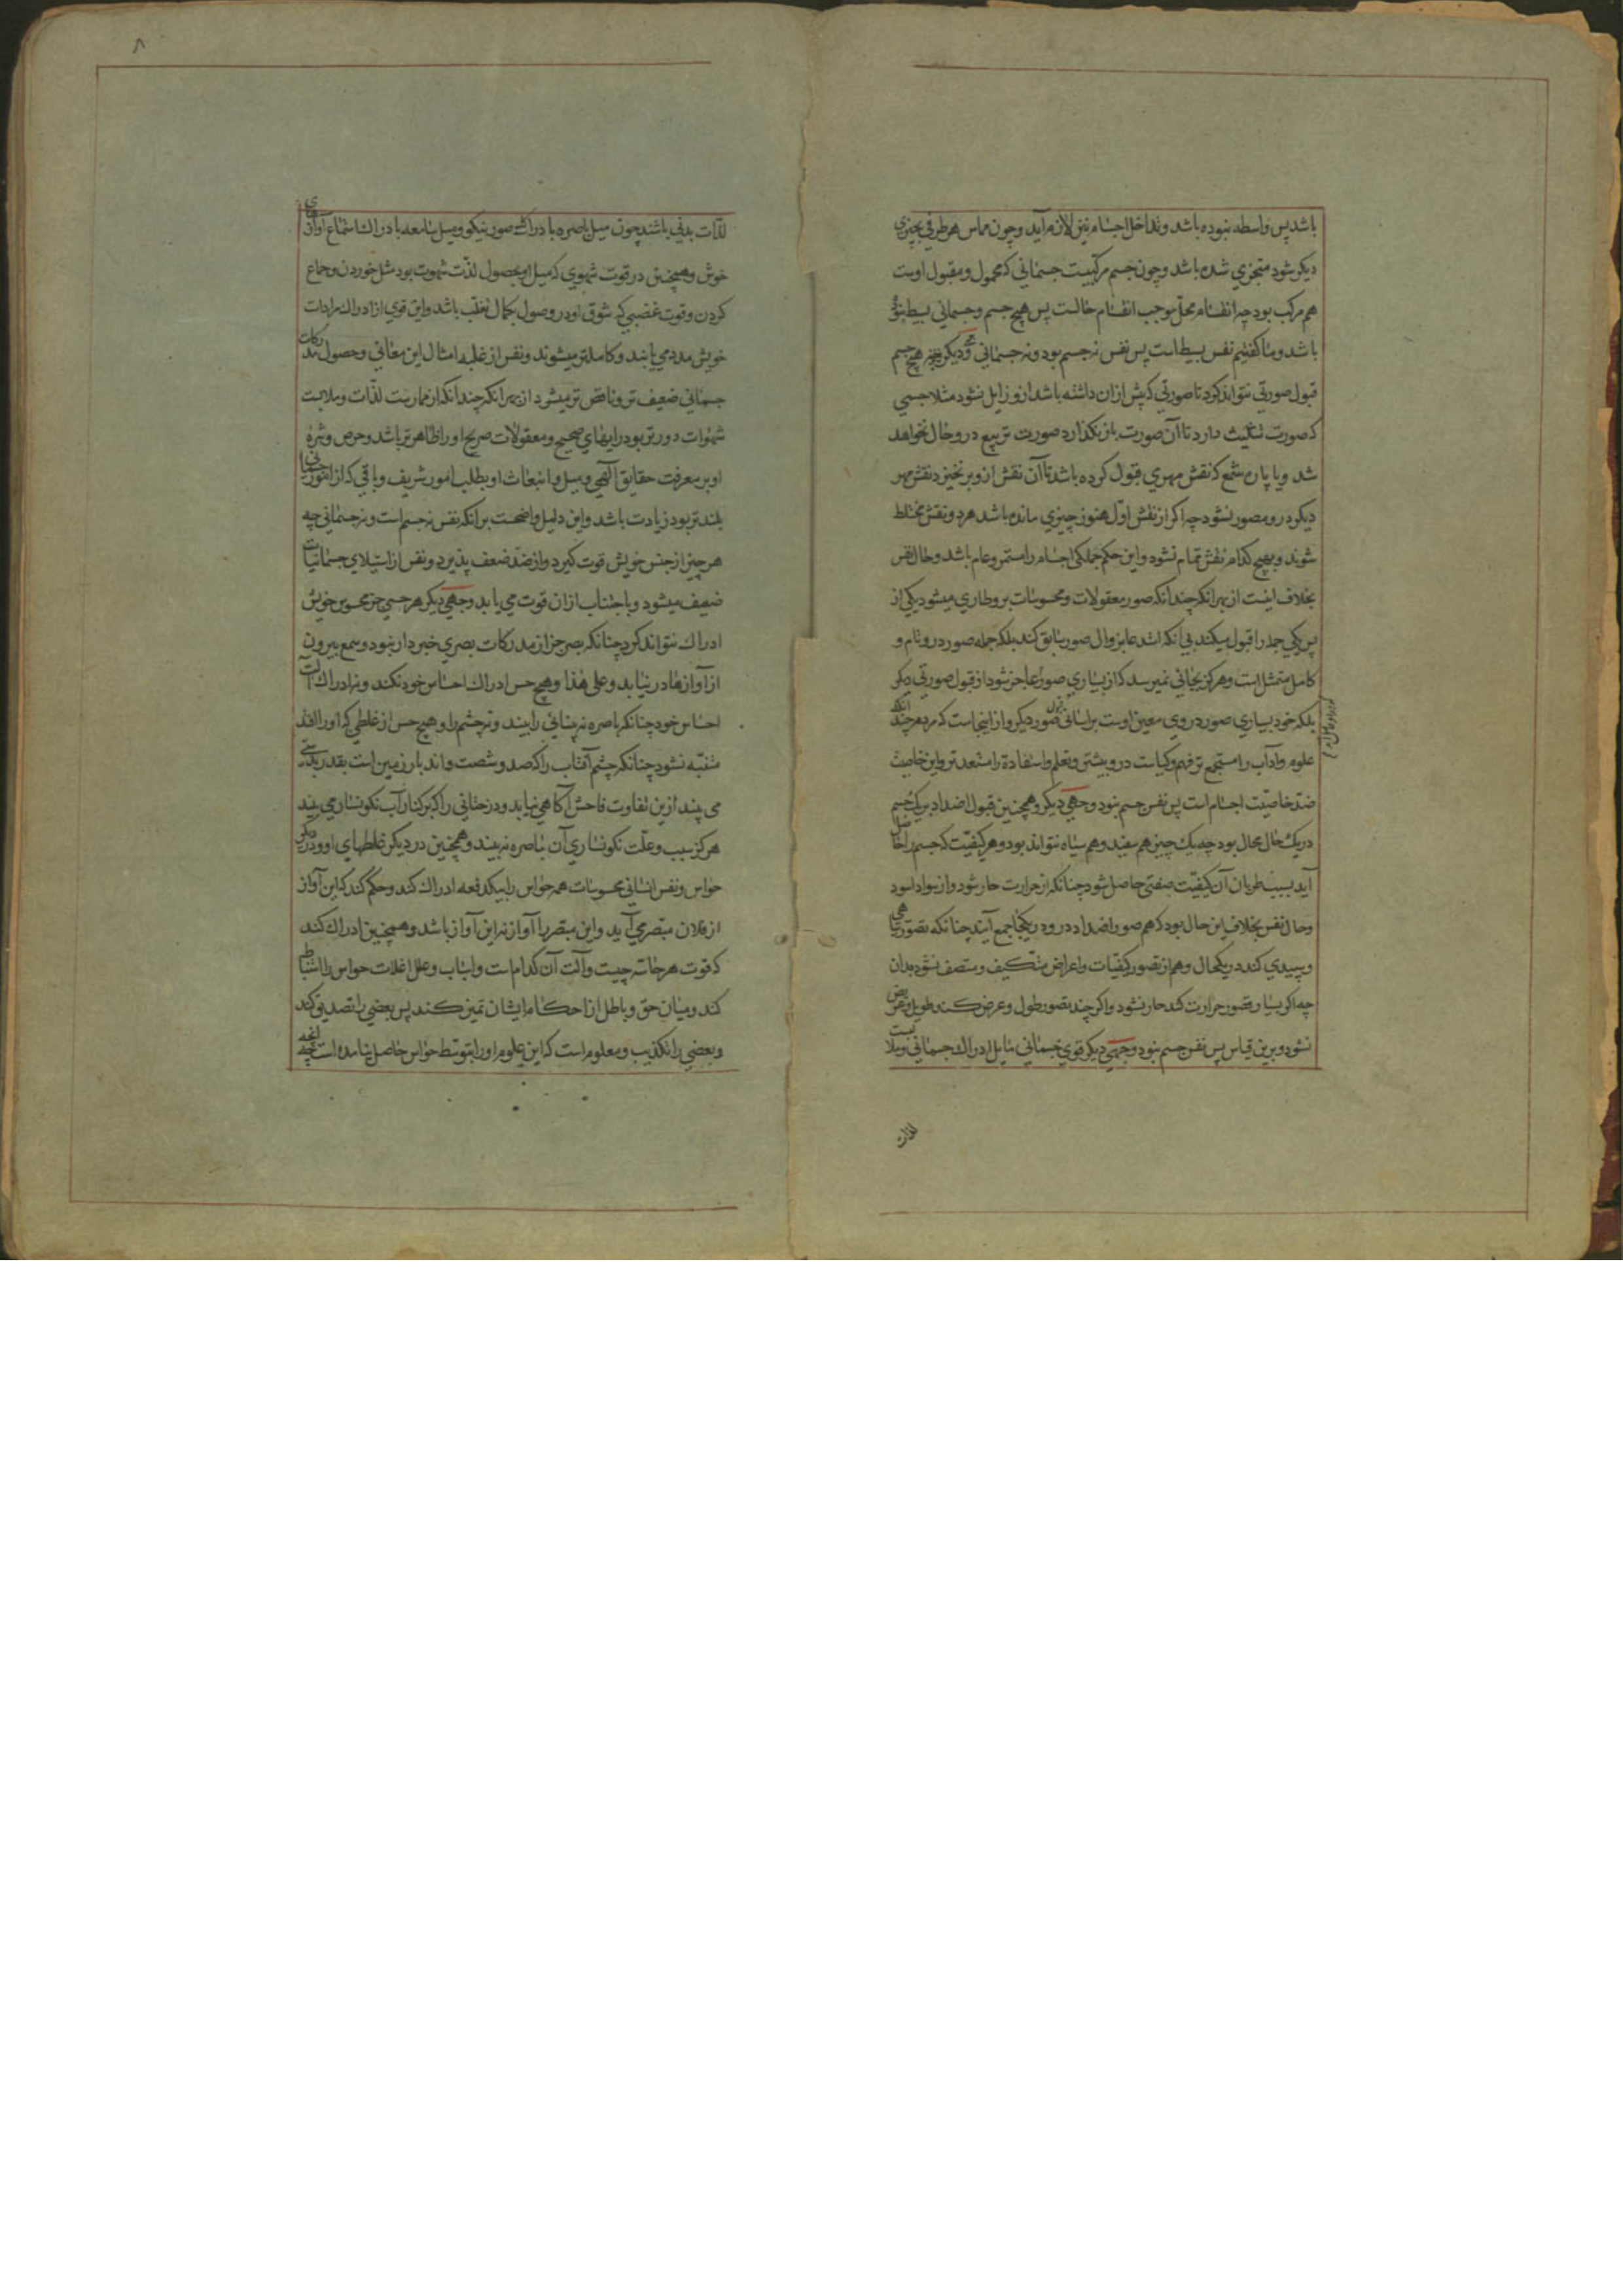 باشد پس واسطه نبوده باشد و تداخل اجسام نیز لازم آید و چون مماس هر طرفی بچیزی
دیکر شود متجزی شده باشد و چون جسم مرکبست جسمانی که محمول و مقبول اوست
هم مرکب بود چه انقسام محل موجب انقسام حالست پس هیچ جسم و جسمانی بسیط نتواند
باشد و ما کفتیم نفس بسیط است پس نفس نه جسم بود و نه جسمانی و دیکر هیچ جسم
قبول صورتی نتواند کرد تا صورتی که پیش از ان داشته باشد ازو زایل نشود مثلا جسمی
که صورت تثلیث دارد تا آن صورت باز نکذارد صورت تربیع درو حال نخواهد
شد و یا پاره شمع که نقش مهری قبول کرده باشد تا آن نقش ازو بر نخیزد نقش مهر
دیکر درو مصور نشود چه اکر از نقش اوّل هنوز چیزی مانده باشد هر دو نقش مختلط
شوند و بهیچ کدام نقش تمام نشود و این حکم جملکی اجسام را مستمر و عام باشد و حال نفس
بخلاف اینست از بهر انکه چندانکه صور معقولات و محسوسات برو طاری میشود یکی از
پس یکی جمله را قبول میکند بی انکه استدعا بزوال صور سابق کند بلکه جمله صور درو تام و
کامل متمثل است و هرکز بجائی نمیرسد که از بسیاری صور عاجز شود از قبول صورتی دیکر
بلکه خود بسیاری صور در وی معین اوست بر آسانی قبول صور دیکر و از اینجاست که مردم هر چند انکه
علوم و آداب را مستجمع تر فهم و کیاست درو بیشتر و تعلم و استفادة را مستعد تر و این خاصیت
ضد خاصیّت اجسام است پس نفس جسم نبود وجهی دیکر و همچنین قبول اضداد بر یک جسم
در یک حال محال بود چه یک چیز هم سفید و هم سیاه نتواند بود و هر کیفیّت که جسم را حاصل
آید بسبب طریان آن کیفیّت صفتی حاصل شود چنانکه از حرارت حار شود و از سواد اسود
و حال نفس بخلاف این حال بود که هم صور اضداد درو در یکجا جمع آیند چنانکه تصور سیاهی
و سپیدی کند در یکحال و هم از تصور کیفیّات و اعراض متکیف و متصف نشود بدان
چه اکر بسیار تصور حرارت کند حار نشود و اکر چند تصور طول و عرض کند طویل و عریض
نشود و برین قیاس پس نفس جسم نبود وجهی دیکر قوی جسمانی مایل ادراک جسمانی و ملابست
لذات
٨
لذّات بدنی باشند چون میل باصره بادراک صور نیکو و میل سامعه بادراک استماع آوازهای
خوش و همچنین در قوت شهوی که میل او بحصول لذّت شهوت بود مثل خوردن و جماع
کردن و قوت غضبی که شوق او در وصول بکمال تغلّب باشد و این قوی از ادراک مرادات
خویش مدد می یابند و کاملتر میشوند و نفس از غلبه امثال این معانی و حصول مدرکات
جسمانی ضعیف تر و ناقص تر میشود از بهر انکه چندانکه از ممارست لذّات و ملابست
شهوات دورتر بود رایهای صحیح و معقولات صریح او را ظاهرتر باشد و حرص و شره
او بر معرفت حقایق آلهی و میل و انبعاث او بطلب امور شریف و باقی که از امور جسمانی
بلندتر بود زیادت باشد و این دلیل واضحست بر انکه نفس نه جسم است و نه جسمانی چه
هر چیز از جنس خویش قوت کیرد و از ضدّ ضعف پذیرد و نفس از استیلای جسمانیات
ضعیف میشود و باجتناب از ان قوت می یابد وجهی دیکر هر حسی جز محسوس خویش
ادراک نتواند کرد چنانکه بصر جز از مدرکات بصری خبردار نبود و سمع بیرون
از آوازها در نیابد و علی هذا و هیچ حس ادراک احساس خود نکند و نه ادراک آلت
احساس خود چنانکه باصره نه بینائی را بیند و نه چشم را و هیچ حس از غلطی که او را افتد
متنبّه نشود چنانکه چشم آفتاب را که صد و شصت و اند بار زمین است بقدر بدستی
می بیند ازین تفاوت فاحش آکاهی نیابد و درختانی را که بر کنار آب نکونسار می بیند
هرکز سبب و علّت نکونساری آن بباصره نه بیند و همچنین در دیکر غلطهای او و در دیکر
حواس و نفس انسانی محسوسات همه حواس را بیکدفعه ادراک کند و حکم کند که این آواز
از فلان مبصر می آید و این مبصر را آواز نه این آواز باشد و همچنین ادراک کند
که قوت هر حاسّه چیست و آلت آن کدام است و اسباب و علل اغلات حواس را استنباط
کند و میان حق و باطل از احکام ایشان تمیز کند پس بعضی را تصدیق کند
و بعضی را تکذیب و معلوم است که این علوم او را بتوسّط حواس حاصل نیامده است چه انچه